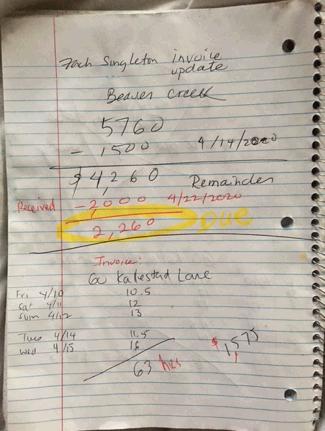 Zach Singleton invoice
update
Beaver Creek
5760
- 1500 4/14/2020
$4,260 Remainder
Received -2,000 4/22/2020
2,260 Due
Invoice:
Lane
Fri 4/10 10.5
Sat 4/11 12
Sun 4/12 13
Tues 4/14 11.5
Wed 4/15 16
63 hrs $1,575